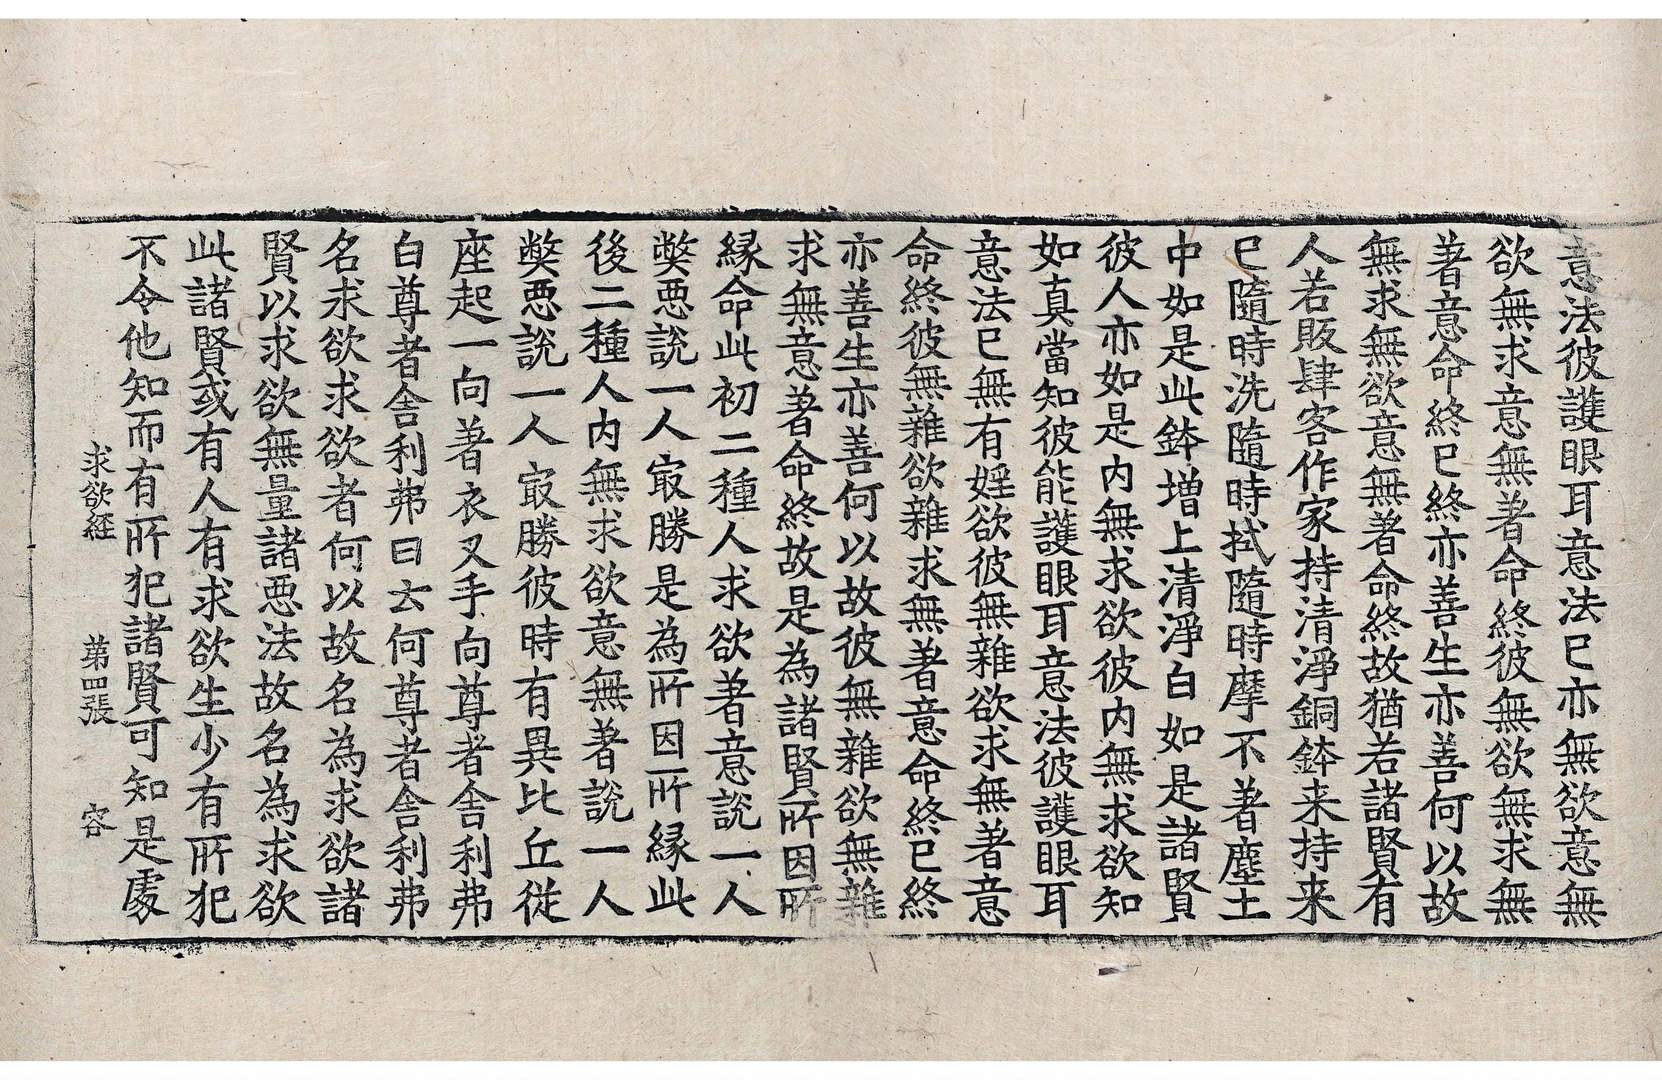 意法彼護眼耳意法已亦無欲意無
欲無求意無著命終彼無欲無求無
著意命終已終亦善生亦善何以故
無求無欲意無著命終故猶若諸賢有
人若販肆客作家持清淨銅鉢来持来
已隨時洗隨時拭隨時摩不著塵土
中如是此鉢增上清淨白如是諸賢
彼人亦如是内無求欲彼内無求欲知
如真當知彼能護眼耳意法彼護眼耳
意法已無有婬欲彼無雜欲求無著意
命終彼無雜欲雜求無著意命終已終
亦善生亦善何以故彼無雜欲無雜
求無意著命終故是為諸賢所因所
縁命此初二種人求欲著意說一人
弊惡說一人㝡勝是為所因所縁此
後二種人内無求欲意無著說一人
弊惡說一人㝡勝彼時有異比丘従
座起一向著衣叉手向尊者舎利弗
白尊者舎利弗曰云何尊者舎利弗
名求欲求欲者何以故名為求欲諸
賢以求欲無量諸惡法故名為求欲
此諸賢或有人有求欲生少有所犯
不令他知而有所犯諸賢可知是處
求欲経 第四張 容